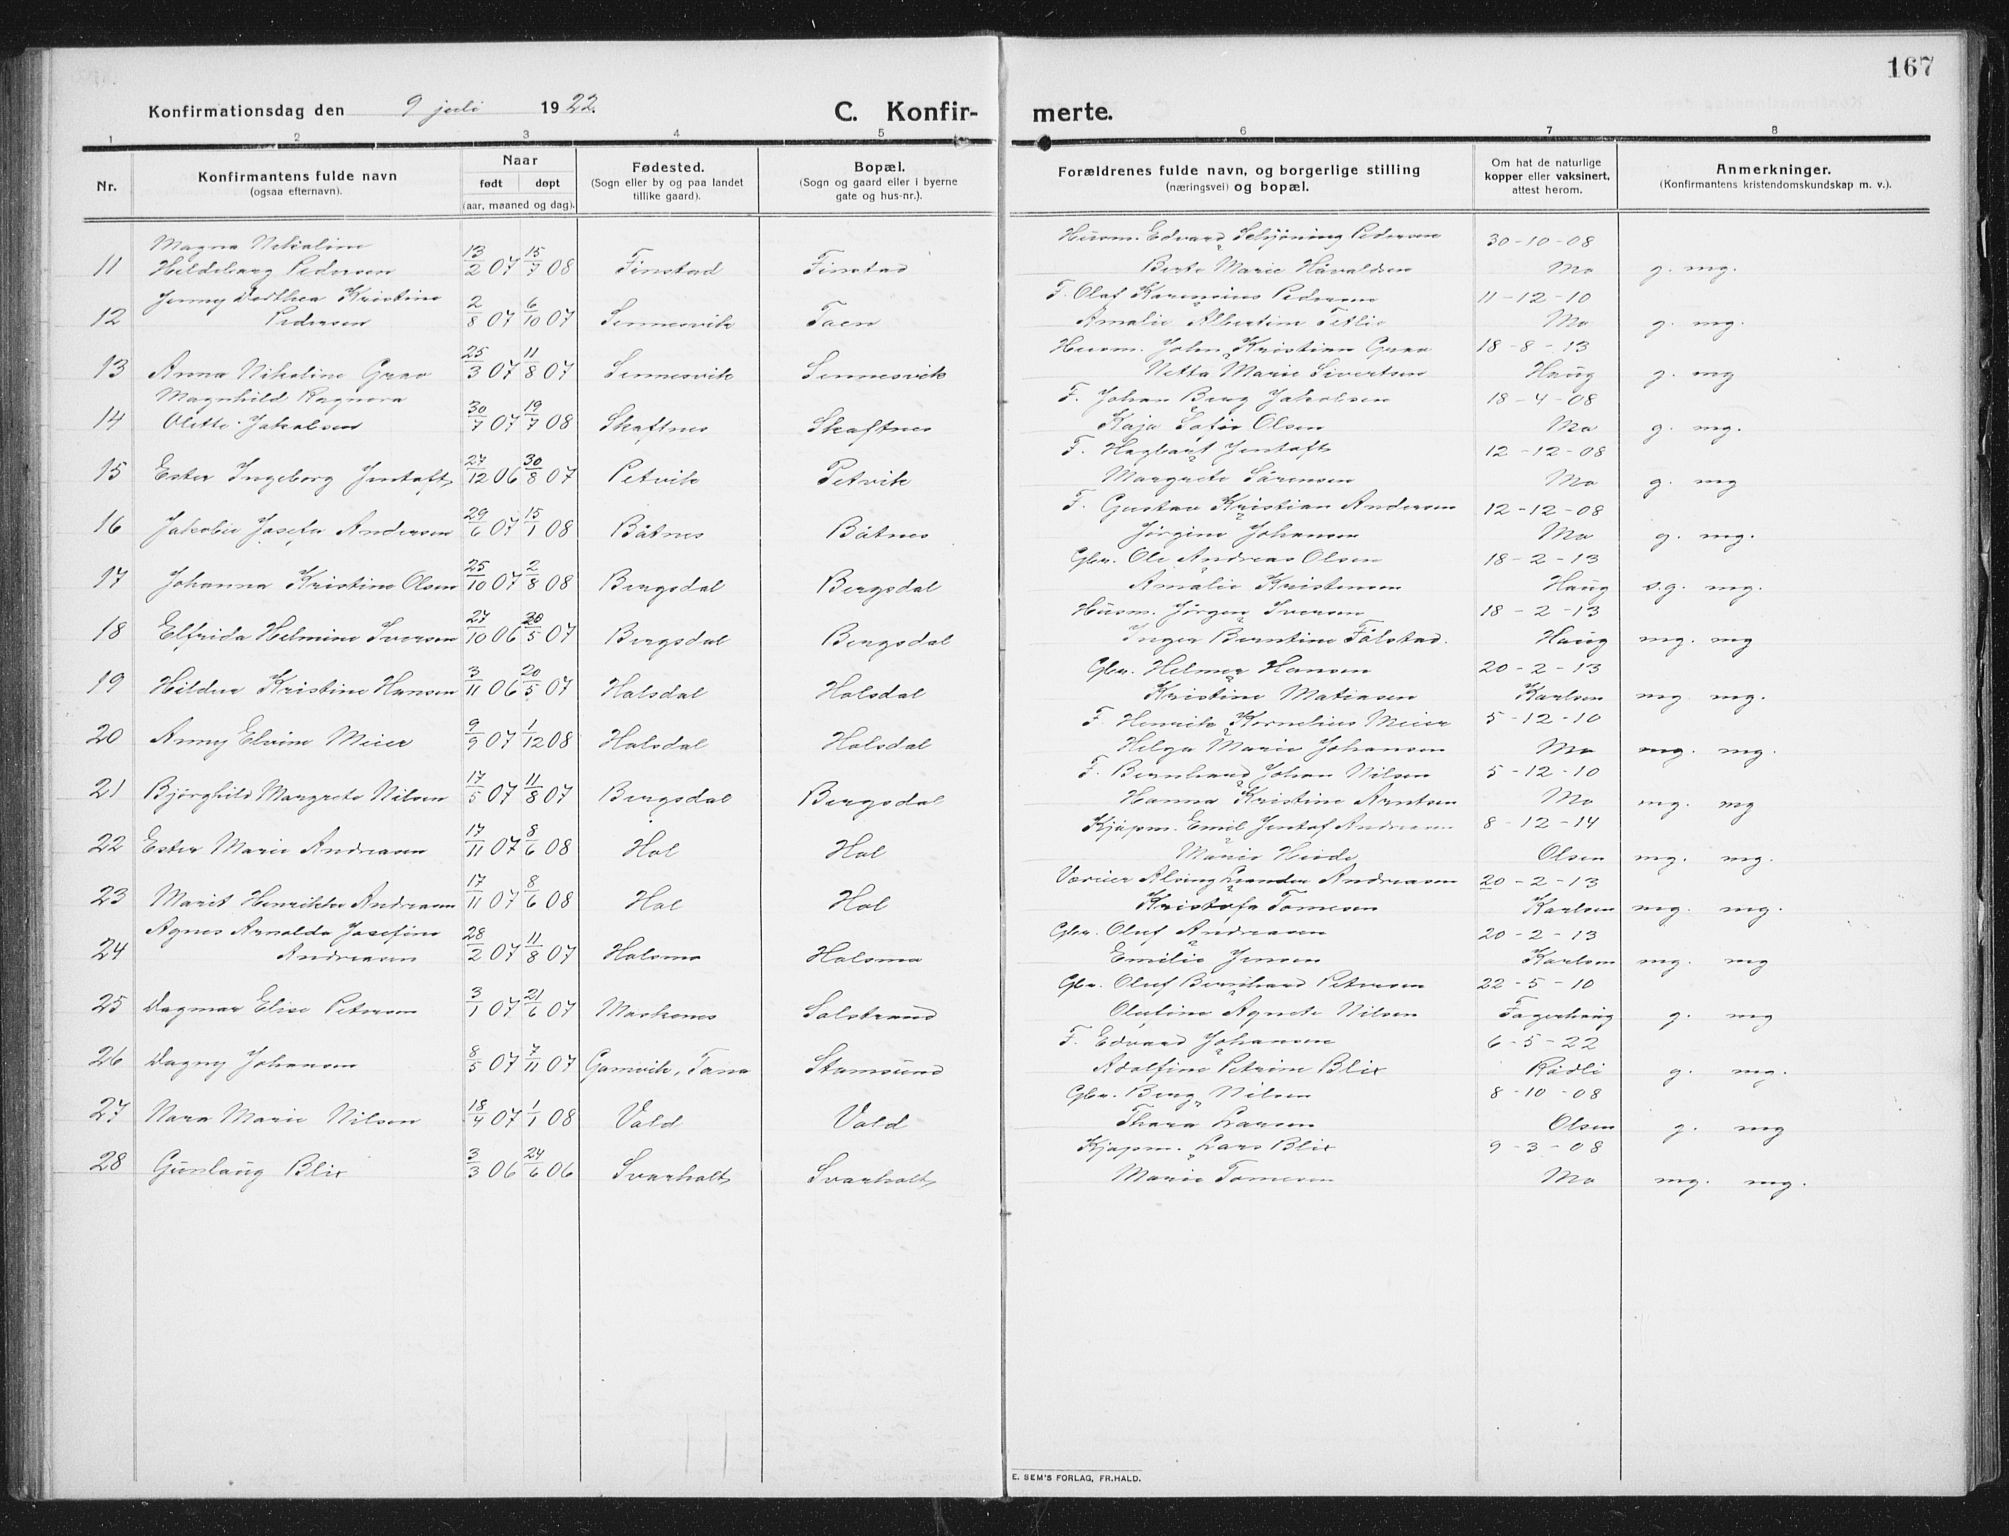 167
Konfirmationsdag den 9 juli 1922. C. Konfir- merte.
1 2 3 4 5 6 7 8
Nr. Konfirmantens fulde navn (ogsaa efternavn). Naar født døpt (aar, maaned og dag). Fødested. (Sogn eller by og paa landet tillike gaard). Bopæl. (Sogn og gaard eller i byerne gate og hus-nr.). Forældrenes fulde navn, og borgerlige stilling (næringsvei) og bopæl. Om hat de naturlige kopper eller vaksinert, attest herom. Anmerkninger. (Konfirmantens kristendomskundskap m. v.).
Magna Nikoline Husm. Edvard Schjöning Pedersen 30-10-08
11 Hildeborg Pedersen 13/2 07 15/7 08 Finstad Finstad Berte Marie Håvaldsen Mo g. mg.
Jenny Dorthea Kristine F. Olaf Karensius Pedersen 11-12-10
12 Pedersen 2/8 07 6/10 07 Sennesvik Taen Amalie Albertine Tetlie Mo g. mg.
Husm. John Kristian Grav 18-8-13
13 Anna Nikoline Grav 25/3 07 11/8 07 Sennesvik Sennesvik Netta Marie Sivertsen Haug g. mg
Magnhild Ragnora F. Johan Berg Jakobsen 18-4-08
14 Olette Jakobsen 30/7 07 19/7 08 Skaftnes Skaftnes Kaja Sofie Olsen Mo g. mg.
F. Hagbart Jentoft 12-12-08
15 Ester Ingeborg Jentoft 27/12 06 30/8 07 Petvik Petvik Margrete Sörensen Mo g. mg
F. Gustav Kristian Andersen 12-12-08
16 Jakobie Josefa Andersen 29/6 07 15/1 08 Båtnes Båtnes Jørgine Johansen Mo g. mg.
Gbr. Ole Andreas Olsen 18-2-13
17 Johanna Kristine Olsen 25/10 07 2/8 08 Bergsdal Bergsdal Amalie Kristensen Haug s.g. mg.
Husm. Jørgen Iversen 18-2-13
18 Elfrida Helmine Iversen 27/10 06 20/5 07 Bergsdal Bergsdal Inger Berntine Fölstad. Haug mg. mg
Gbr. Helmer Hansen 20-2-13
19 Hildur Kristine Hansen 3/11 06 20/5 07 Holsdal Holsdal Kristine Matiasen Karlsen mg mg.
F. Henrik Kornelius Meier 5-12-10
20 Anny Elvine Meier 9/9 07 1/12 08 Holsdal Holsdal Helga Marie Johansen Mo mg. mg.
F. Bernhard Johan Nilsen 5-12-10
21 Bjørghild Margrete Nilsen 17/5 07 11/8 07 Bergsdal Bergsdal Hanna Kristine Arntsen Mo mg. mg
Kjøpm. Emil Jentof Andreasen 8-12-14
22 Ester Marie Andreasen 17/11 07 8/6 08 Hol Hol Marie Heide Olsen mg. mg.
Alving Leander Andreasen 20-2-13
23 Marit Henrikke Andreasen 17/11 07 8/6 08 Hol Hol Kristofa Tomesen Karlsen mg. mg.
Agnes Arnolda Josefine Gbr. Oluf Andreasen 20-2-13
24 Andreasen 28/2 07 11/8 07 Holsmo Holsmo Emilie Jensen Karlsen mg. mg
Gbr. Oluf Bernhard Petersen 22-5-10
25 Dagmar Elise Petersen 3/1 07 21/6 07 Moskenes Solstrand Olufine Agnete Nilsen Fagerhaug g. mg
F. Edvard Johansen 6-5-22
26 Dagny Johansen 8/5 07 7/11 07 Gamvik, Tana Stamsund Adolfine Petrine Blix Rødli g. mg.
Gbr. Berg Nilsen 8-10-08
27 Nora Marie Nilsen 18/4 07 1/1 08 Vold Vold Thora Larsen Olsen g. mg
Kjøpm. Lars Blix 9-3-08
28 Gunlaug Blix 3/3 06 24/6 06 Svarholt Svarholt Marie Tomesen Mo mg. mg.
E. SEM'S FORLAG, FR.HALD.